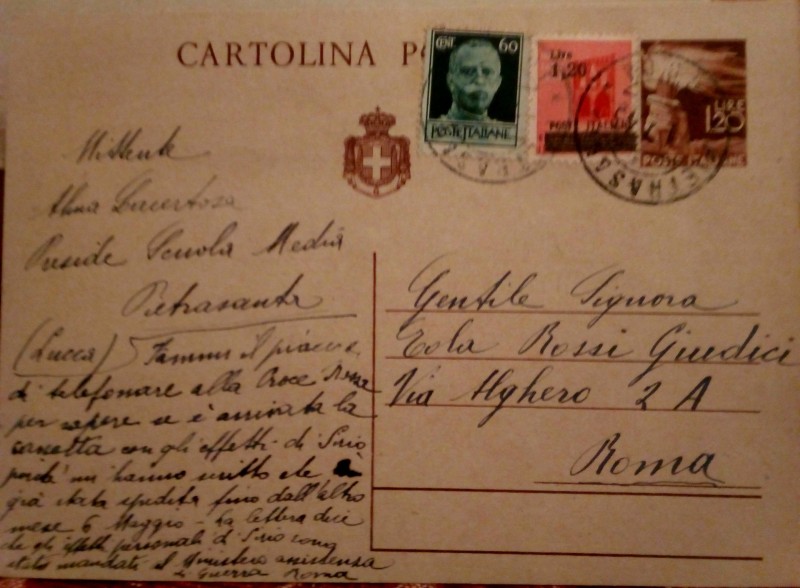 CARTOLINA PO
CENT. 60
POSTE ITALIANE
Lire
1,20
POSTE ITALIANE
LIRE
1,20
PIETRASANTA
Mittente
Alma Lucertosa
Preside Scuola Media
Pietrasanta
(Lucca) Fammi il piacere
di telefonare alla Croce Rossa
per sapere se è arrivata la
cassetta con gli effetti di Sirio
poiché mi hanno scritto che è
già stata spedita fino dall'altro
mese 6 Maggio - La lettera dice
che gli effetti personali di Sirio sono
stati mandati al Ministero assistenza
Guerra Roma
Gentile Signora
Eola Rossi Giudici
Via Alghero 2 A
Roma